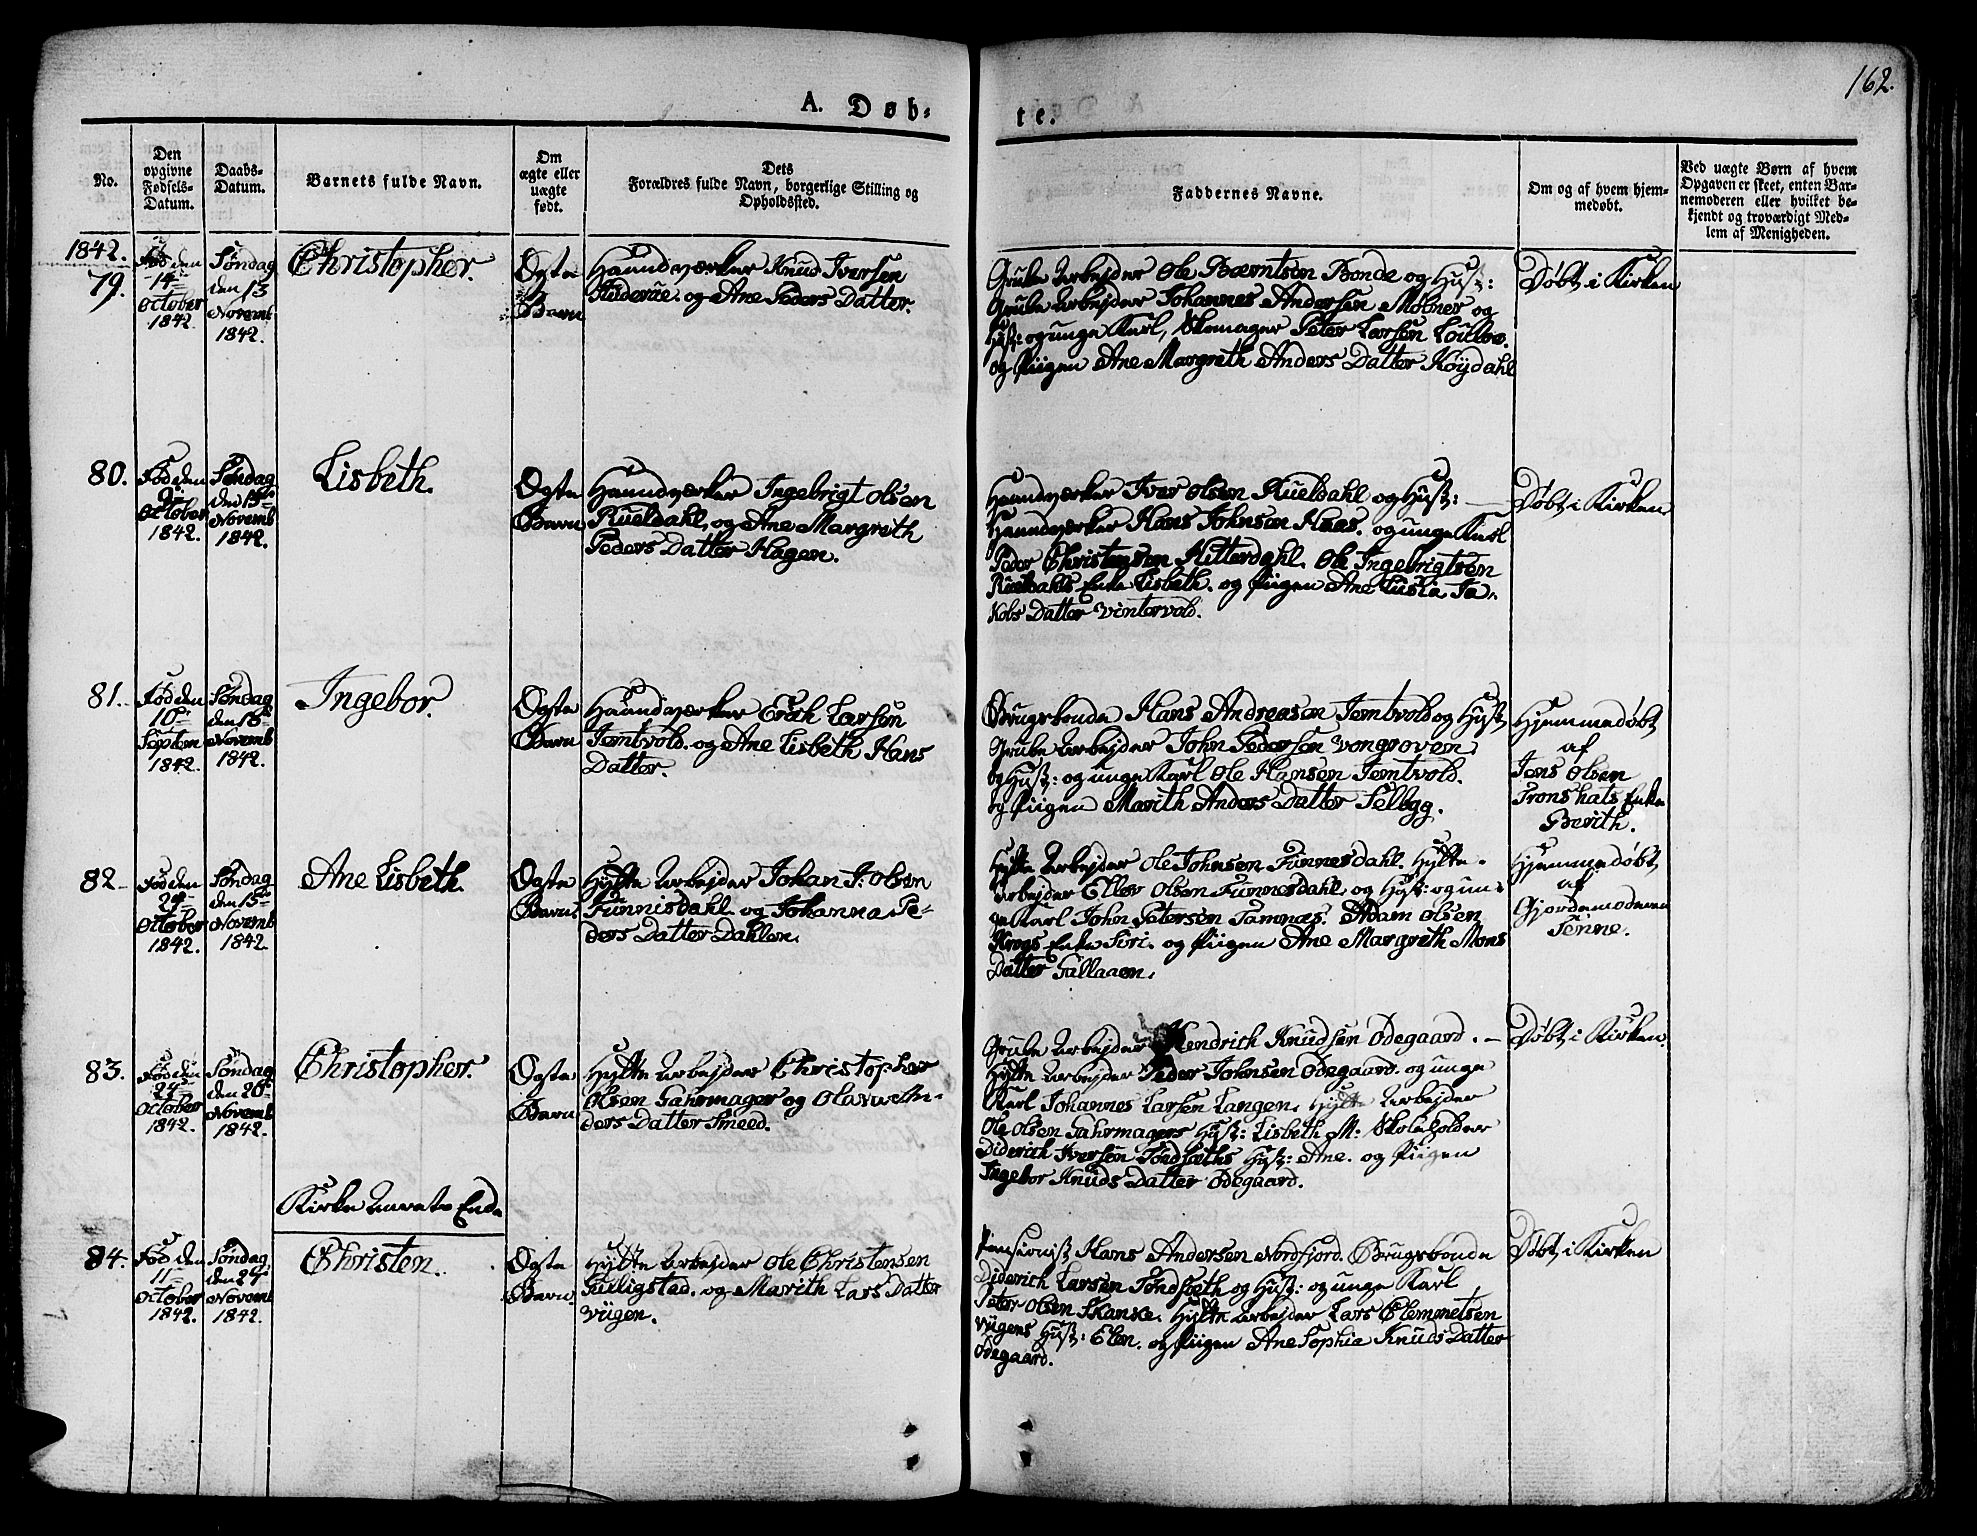 162.
A. Døb-
te.
No.
Den
opgivne
Fødsels-
Datum.
Daabs-
Datum.
Barnets fulde Navn.
Om
ægte eller
uægte
født.
Dets
Forældres fulde Navn, borgerlige Stilling og
Opholdssted.
Faddernes Navne.
Om og af hvem hjem-
medøbt.
Ved uægte Børn af hvem
Opgaven er skeet, enten Bar-
nemoderen eller hvilket be-
kjendt og troværdigt Med-
lem af Menigheden.
1842.
79.
Fød den
14de
October
1842.
Søndag
den 13
Novemb
1842.
Christopher.
Ægte
Barn
Haandværker Knud Iversen
og Ane Peders Datter.
Grube Arbejder Ole Berntsen Bonde og Hust:
Grube Arbejder Johannes Andersen Møbner og
Hust: og unge Karl, Skomager Peter Larsen
og Piigen Ane Margreth Anders Datter Röÿdahl
Døbt i Kirken
80.
Fød den
October
1842.
Søndag
den 13de
Novemb
1842.
Lisbeth.
Ægte
Barn
Haandværker Ingebrigt Olsen
Rueldahl, og Ane Margreth
Peders Datter Hagen.
Haandværker Iver Olsen Rueldahl og Hust:
Haandværker Hans Johnsen Haas. og unge Karl
Peder Christensen Hitterdahl. Ole Ingebrigtsen
Rueldahls Enke Lisbeth. og Piigen Ane Lusia Ja-
kobs Datter Vintervold.
Døbt i Kirken
81.
Fød den
10de
Septem
1842.
Søndag
den 13de
Novemb
1842.
Ingebor.
Ægte
Barn
Haandværker Erich Larsen
Jemtvold. og Ane Lisbeth Hans
Datter.
Brugsbonde Hans Andreasen Jemtvold og Hust
Grube Arbejder John Pedersen Vongroven
og Hust: og unge Karl Ole Hansen Jemtvold.
og Piigen Marith Anders Datter Selbÿg.
Hjemmedøbt
af
Jens Olsen
Tronshats Enke
Berith.
82.
Fød den
29de
October
1842.
Søndag
den 13de
Novemb
1842.
Ane Lisbeth.
Ægte
Barn
Hytte Arbejder Johan J: Olsen
Funnisdahl. og Johanna Pe-
ders Datter Dahlen.
Hytte Arbejder Ole Johnsen Funnesdahl. Hytte-
Arbejder Ellev Olsen Funnesdahl, og Hust: og un-
ge Karl John Petersen Tamnæs. Adam Olsen
Krogs Enke Siri. og Piigen Ane Margreth Mons
Datter Galaaen.
Hjemmedøbt
af
Gjordemoderen
83.
Fød den
24de
October
1842.
Søndag
den 20de
Novemb
1842.
Christopher.
Ægte
Barn
Hytte Arbejder Christopher
Olsen Gahrmager og Olava An-
ders Datter Smeed.
Grube Arbejder Hendrich Knudsen Ødegaard.
Hytte Arbejder Peder Johnsen Ødegaard. og unge
Karl Johannes Larsen Langen. Hytte Arbejder
Ole Olsen Gahrmagers Hust: Lisbeth M: Skoleholder
Diderich Iversen Tøndsæths Hust: Ane. og Piigen
Ingebor Knuds Datter Ødegaard.
Døbt i Kirken.
Kirke Aarets Ende
84.
Fød den
11de
October
1842.
Søndag
den 27de
Novemb
1842.
Christen.
Ægte
Barn.
Hytte Arbejder Ole Christensen
Gulligstad. og Marith Lars Datter
Vügen.
Pensionist Hans Andersen Nordfjord. Brugsbonde
Diderich Larsen Tøndsæth og Hust: og unge Karl
Peter Olsen Skanke. Hytte Arbejder Lars Clemmetsen
Vügens Hust: Elen. og Piigen Ane Sophie Knuds Datter
Ødegaard.
Døbt i Kirken